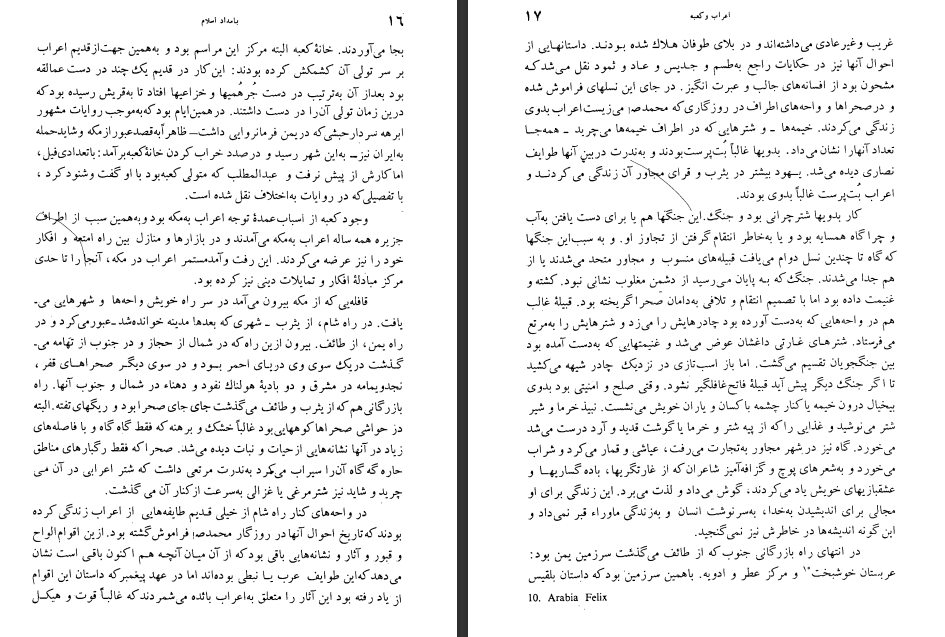 ۱۶
بامداد اسلام
بجا می‌آوردند. خانهٔ کعبه البته مرکز این مراسم بود و به‌همین جهت از قدیم اعراب
بر سر تولی آن کشمکش کرده بودند: این کار در قدیم یک چند در دست عمالقه
بود بعد از آن به‌ترتیب در دست جرهمیها و خزاعیها افتاد تا به‌قریش رسیده بود که
درین زمان تولی آن را در دست داشتند. در همین ایام بود که به‌موجب روایات مشهور
ابرهه سردار حبشی که در یمن فرمانروایی داشت ــ ظاهراً به‌قصد عبور از مکه و شاید حمله
به‌ایران نیز ــ به‌این شهر رسید و در صدد خراب کردن خانهٔ کعبه برآمد: با تعدادی فیل،
اما کارش از پیش نرفت و عبدالمطلب که متولی کعبه بود با او گفت و شنود کرد،
با تفصیلی که در روایات به‌اختلاف نقل شده است.
وجود کعبه از اسباب عمدهٔ توجه اعراب به‌مکه بود و به‌همین سبب از اطراف
جزیره همه ساله اعراب به‌مکه می‌آمدند و در بازارها و منازل بین راه امتعه و افکار
خود را نیز عرضه می‌کردند. این رفت و آمد مستمر اعراب در مکه، آنجا را تا حدی
مرکز مبادلهٔ افکار و تمایلات دینی نیز کرده بود.
قافله‌یی که از مکه بیرون می‌آمد در سر راه خویش واحه‌ها و شهرهایی می‌ـ
یافت. در راه شام، از یثرب ـ شهری که بعدها مدینه خوانده شد ـ عبور می‌کرد و در
راه یمن، از طائف. بیرون ازین راه که در شمال از حجاز و در جنوب از تهامه می‌ـ
گذشت در یک سوی وی دریای احمر بود و در سوی دیگر صحراهای قفر،
نجد و یمامه در مشرق و دو بادیهٔ هولناک نفود و دهناء در شمال و جنوب آنها. راه
بازرگانی هم که از یثرب و طائف می‌گذشت جای جای صحرا بود و ریگهای تفته. البته
در حواشی صحراها کوههایی بود غالباً خشک و برهنه که فقط گاه گاه و با فاصله‌های
زیاد در آنها نشانه‌هایی از حیات و نبات دیده می‌شد. صحرا که فقط رگبارهای مناطق
حاره گه گاه آن را سیراب می‌کرد به‌ندرت مرتعی داشت که شتر اعرابی در آن می‌ـ
چرید و شاید نیز شترمرغی یا غزالی به‌سرعت از کنار آن می‌گذشت.
در واحه‌های کنار راه شام از خیلی قدیم طایفه‌هایی از اعراب زندگی کرده
بودند که تاریخ احوال آنها در روزگار محمد(ص) فراموش گشته بود. ازین اقوام الواح
و قبور و آثار و نشانه‌هایی باقی بود که از آن میان آنچه هم اکنون باقی است نشان
می‌دهد که این طوایف عرب یا نبطی بوده‌اند اما در عهد پیغمبر که داستان این اقوام
از یاد رفته بود این آثار را متعلق به‌اعراب بائده می‌شمردند که غالباً قوت و هیکل
۱۷
اعراب و کعبه
غریب و غیرعادی می‌داشته‌اند و در بلای طوفان هلاک شده بودند. داستانهایی از
احوال آنها نیز در حکایات راجع به‌طسم و جدیس و عاد و ثمود نقل می‌شد که
مشحون بود از افسانه‌های جالب و عبرت انگیز. در جای این نسلهای فراموش شده
و در صحراها و واحه‌های اطراف در روزگاری که محمد(ص) می‌زیست اعراب بدوی
زندگی می‌کردند. خیمه‌ها ـ و شترهایی که در اطراف خیمه‌ها می‌چرید ـ همه‌جا
تعداد آنها را نشان می‌داد. بدویها غالباً بُت‌پرست بودند و به‌ندرت دربین آنها طوایف
نصاری دیده می‌شد. یهود بیشتر در یثرب و قرای مجاور آن زندگی می‌کردند و
اعراب بُت‌پرست غالباً بدوی بودند.
کار بدویها شترچرانی بود و جنگ. این جنگها هم یا برای دست یافتن به‌آب
و چراگاه همسایه بود و یا به‌خاطر انتقام گرفتن از تجاوز او. و به سبب این جنگها
که گاه تا چندین نسل دوام می‌یافت قبیله‌های منسوب و مجاور متحد می‌شدند یا از
هم جدا می‌شدند. جنگ که به پایان می‌رسید از دشمن مغلوب نشانی نبود. کشته و
غنیمت داده بود اما با تصمیم انتقام و تلافی به‌دامان صحرا گریخته بود. قبیلهٔ غالب
هم در واحه‌هایی که به‌دست آورده بود چادرهایش را می‌زد و شترهایش را به‌مرتع
می‌فرستاد. شترهای غارتی داغشان عوض می‌شد و غنیمتهایی که به‌دست آمده بود
بین جنگجویان تقسیم می‌گشت. اما باز اسب‌تازی در نزدیک چادر شیهه می‌کشید
تا اگر جنگ دیگر پیش آید قبیلهٔ فاتح غافلگیر نشود. وقتی صلح و امنیتی بود بدوی
بیخیال درون خیمه یا کنار چشمه با کسان و یاران خویش می‌نشست. نبیذ خرما و شیر
شتر می‌نوشید و غذایی را که از پیه شتر و خرما یا گوشت قدید و آرد درست می‌شد
می‌خورد. گاه نیز در شهر مجاور به‌تجارت می‌رفت، عیاشی و قمار می‌کرد و شراب
می‌خورد و به‌شعرهای پوچ و گزافه‌آمیز شاعران که از غارتگریها، باده گساریها و
عشقبازیهای خویش یاد می‌کردند، گوش می‌داد و لذت می‌برد. این زندگی برای او
مجالی برای اندیشیدن به‌خدا، به‌سرنوشت انسان و به‌زندگی ماوراء قبر نمی‌داد و
این گونه اندیشه‌ها در خاطرش نیز نمی‌گنجید.
در انتهای راه بازرگانی جنوب که از طائف می‌گذشت سرزمین یمن بود:
عربستان خوشبخت۱۰ و مرکز عطر و ادویه. با همین سرزمین بود که داستان بلقیس
10. Arabia Felix